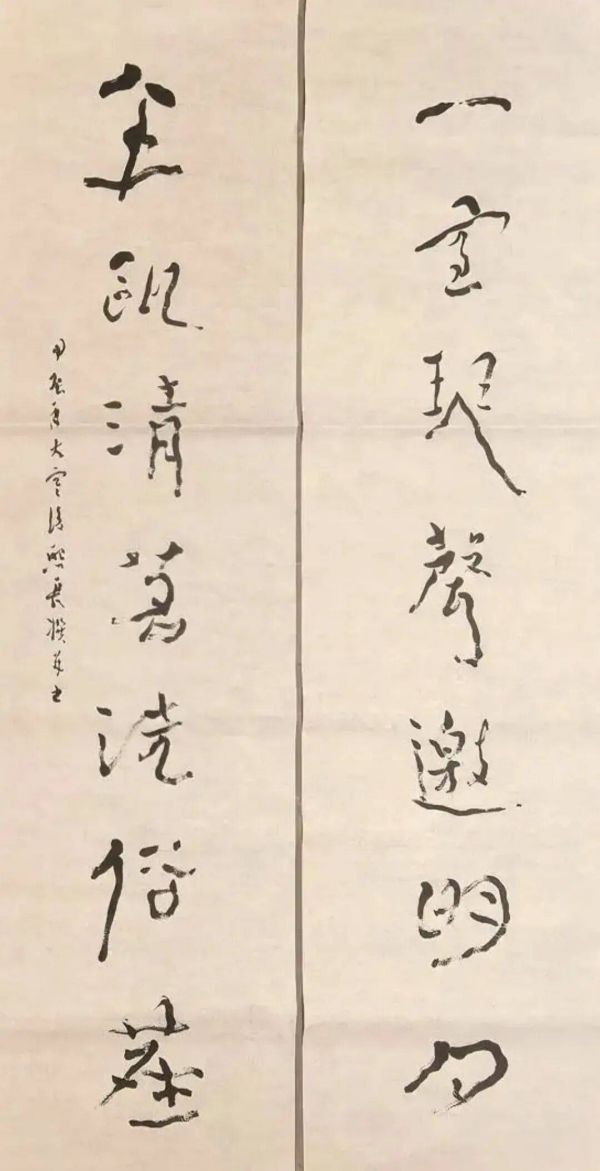 一室琴聲邀明月
金甌清茗洗俗塵
甲辰年大寒後熙長撰并書